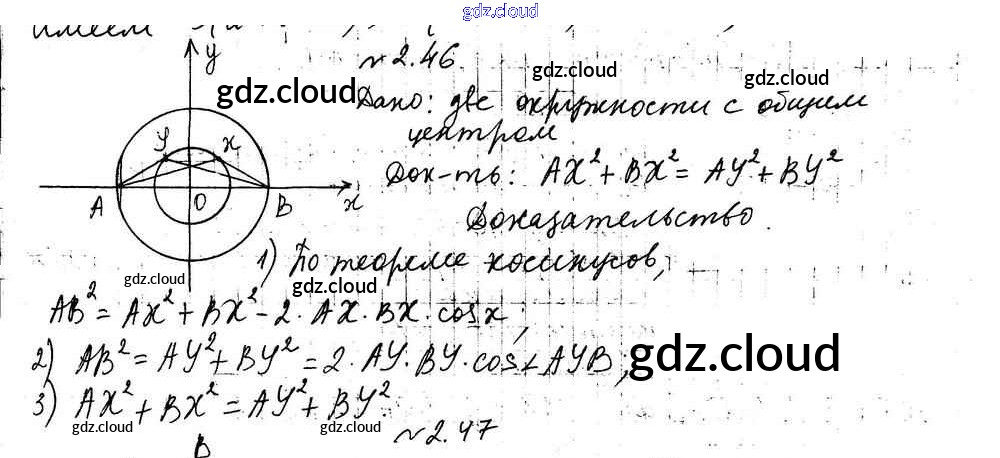 gdz.cloud
имеем
y
№ 2.46
gdz.cloud
gdz.cloud
gdz.cloud
Дано: две окружности с общим
центром
Y
X
Док-ть: AX² + BX² = AY² + BY²
A
O
B
x
Доказательство.
1) По теореме косинусов,
gdz.cloud
gdz.cloud
AB² = AX² + BX² - 2 · AX · BX · cos x;
2) AB² = AY² + BY² = 2 · AY · BY · cos ∠ AYB;
gdz.cloud
3) AX² + BX² = AY² + BY²
gdz.cloud
gdz.cloud
gdz.cloud
№ 2.47
B